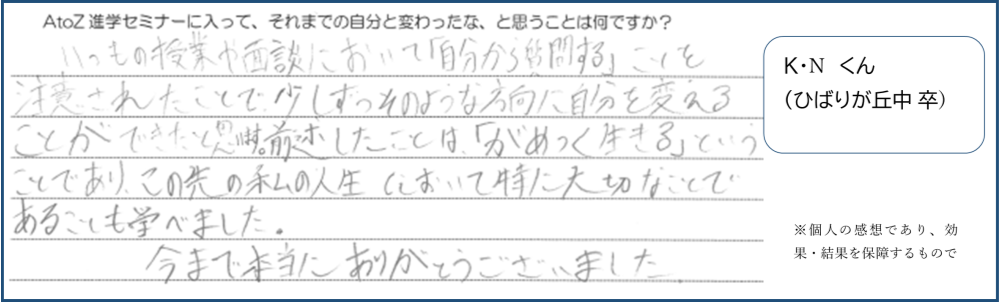 AtoZ 進学セミナーに入って、それまでの自分と変わったな、と思うことは何ですか？
いつもの授業や面談において「自分から質問する」ことを
注意されたことで、少しずつそのような方向に自分を変える
ことができたと思います。前述したことは、「がめつく生きる」という
ことであり、この先の私の人生において特に大切なことで
あることも学べました。
今まで本当にありがとうございました。
K・N くん
（ひばりが丘中 卒）
※個人の感想であり、効
果・結果を保障するもので